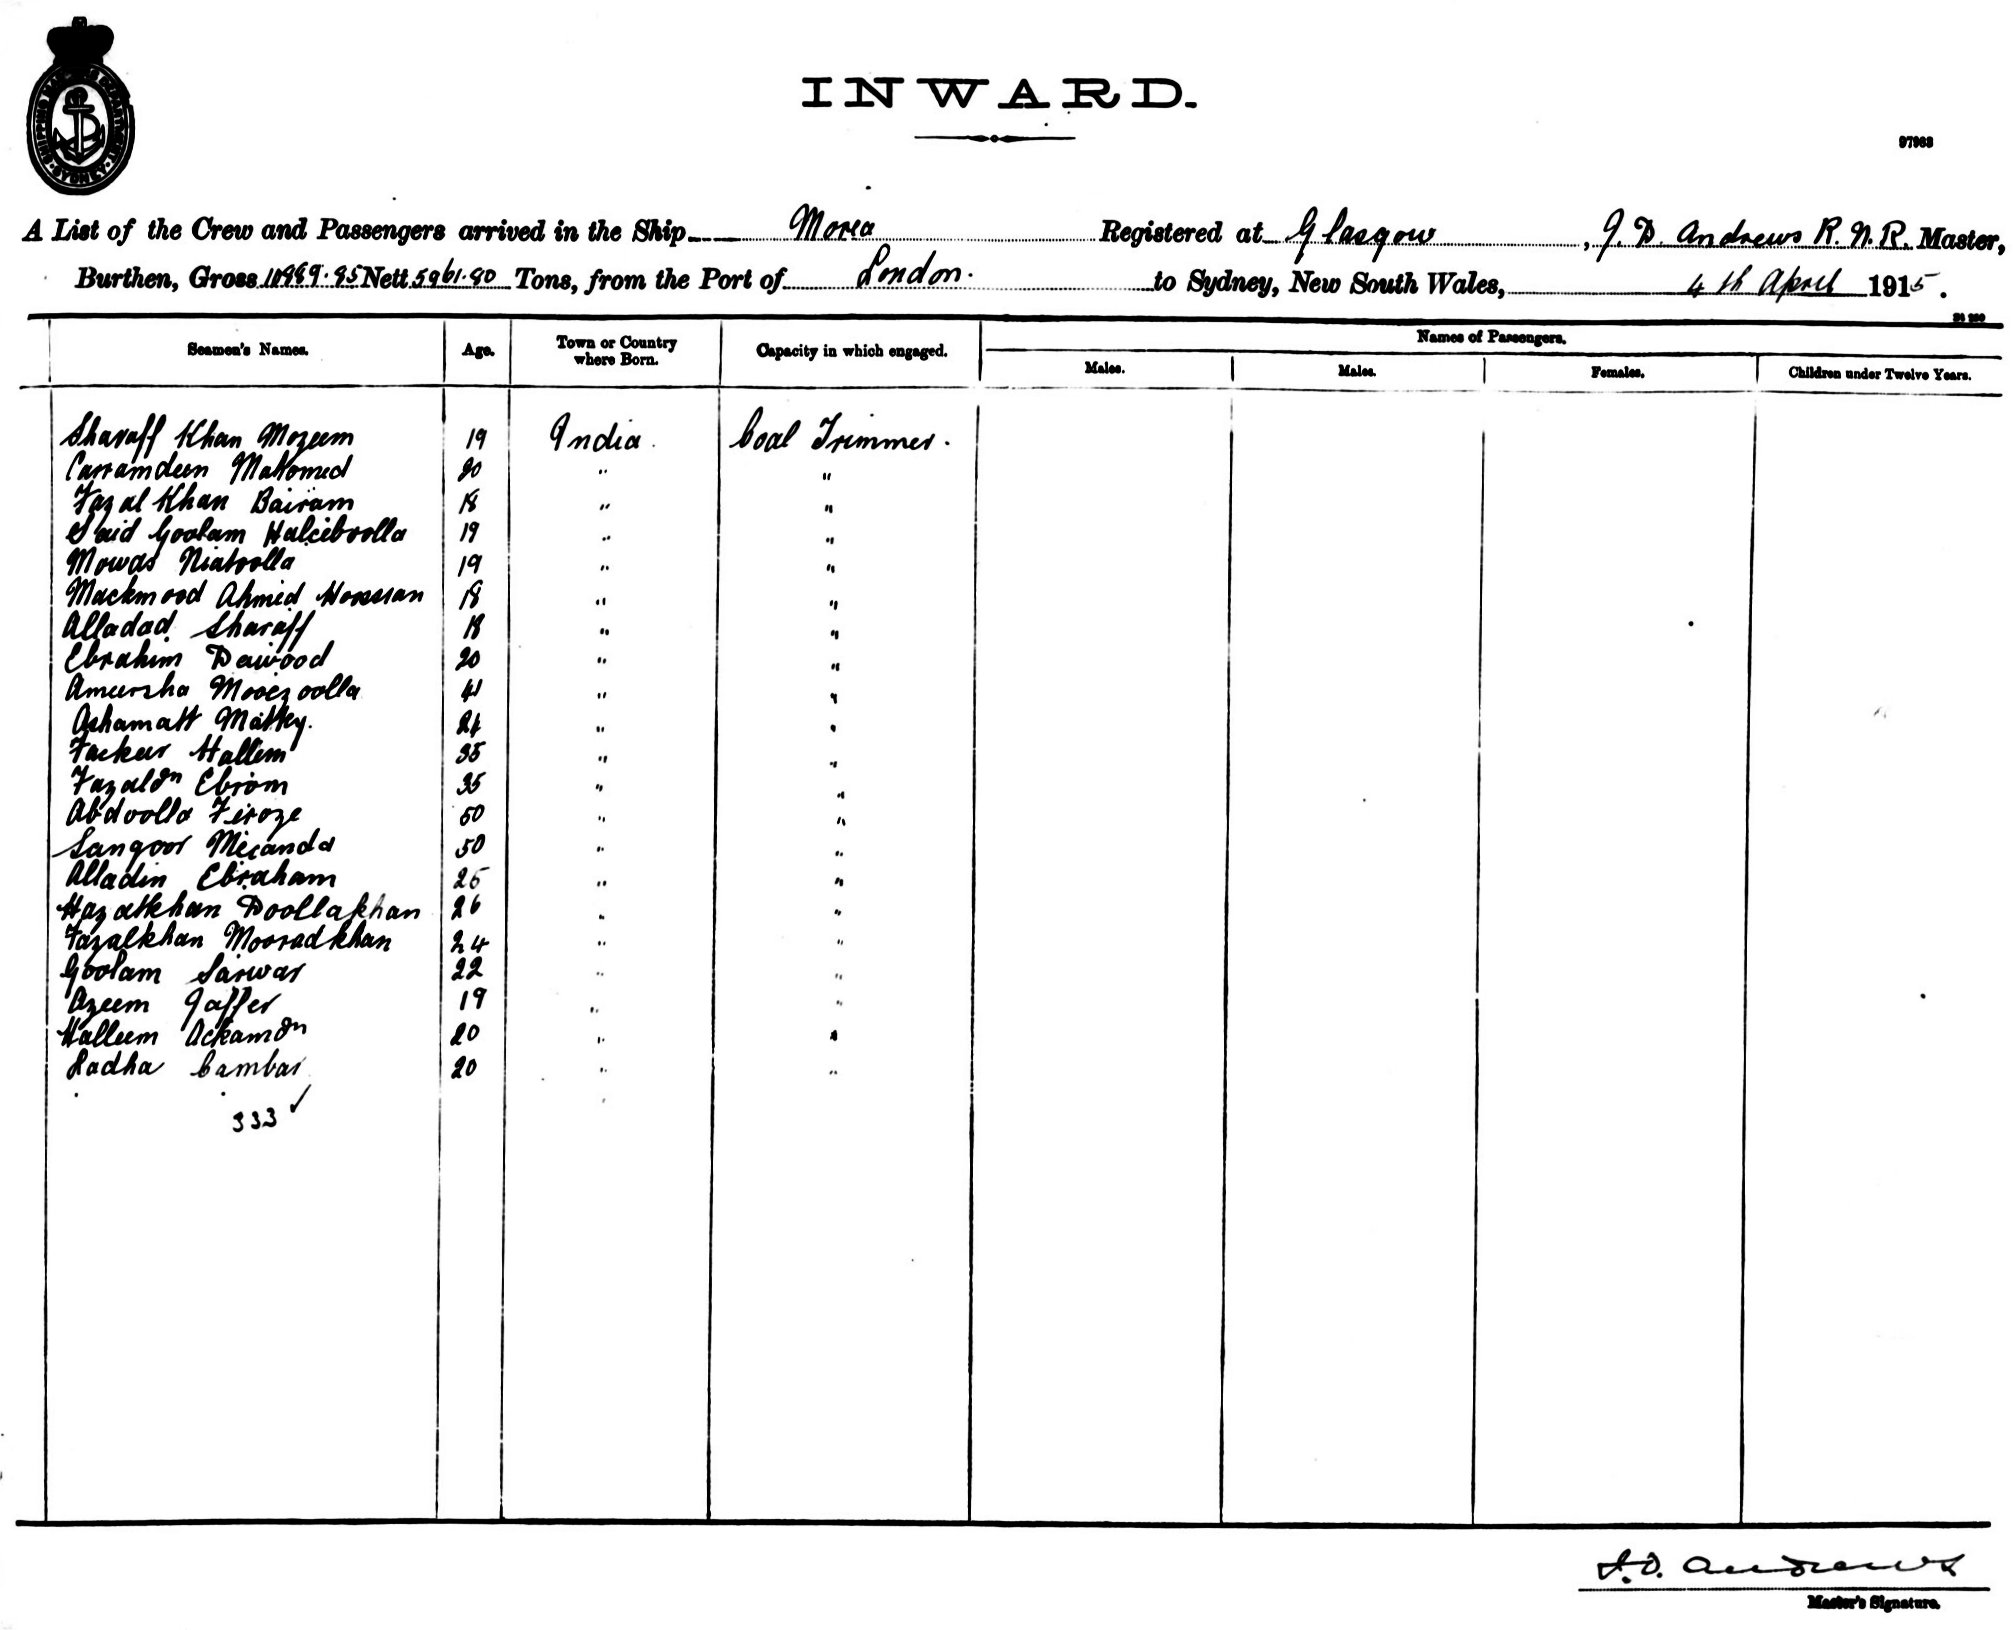 SHIPPING MASTER'S DEPARTMENT · SYDNEY ·
INWARD.
97963
A List of the Crew and Passengers arrived in the Ship Morea Registered at Glasgow, J. D. Andrews R. N. R. Master,
Burthen, Gross 10989.95 Nett 5961.90 Tons, from the Port of London. to Sydney, New South Wales, 4th April 1915.
Seamen's Names. Age. Town or Country where Born. Capacity in which engaged. Names of Passengers.
Males. Males. Females. Children under Twelve Years.
Sharaff Khan Mozeem 19 India. Coal Trimmer.
Carramdeen Mahomed 20 " "
Fazal Khan Bairam 18 " "
Said Goolam Halciboolla 19 " "
Mowds Niatoolla 19 " "
Mackmood Ahmid Hosssan 18 " "
Alladad Sharaff 18 " "
Ebrahim Dawood 20 " "
Ameersha Mooezoolla 41 " "
Ashamatt Mattey. 24 " "
Fackeer Hallem 35 " "
Fazaldn Ebram 35 " "
Abdoolla Firoze 50 " "
Sangoor Mecanda 50 " "
Alladin Ebraham 25 " "
Hazatkhan Doollakhan 26 " "
Fazalkhan Mooradkhan 24 " "
Goolam Sarwar 22 " "
Azeem Gaffer 19 " "
Halleem Ackamdn 20 " "
Radha Cambar 20 " "
333 ✓
J. D. Andrews
Master's Signature.